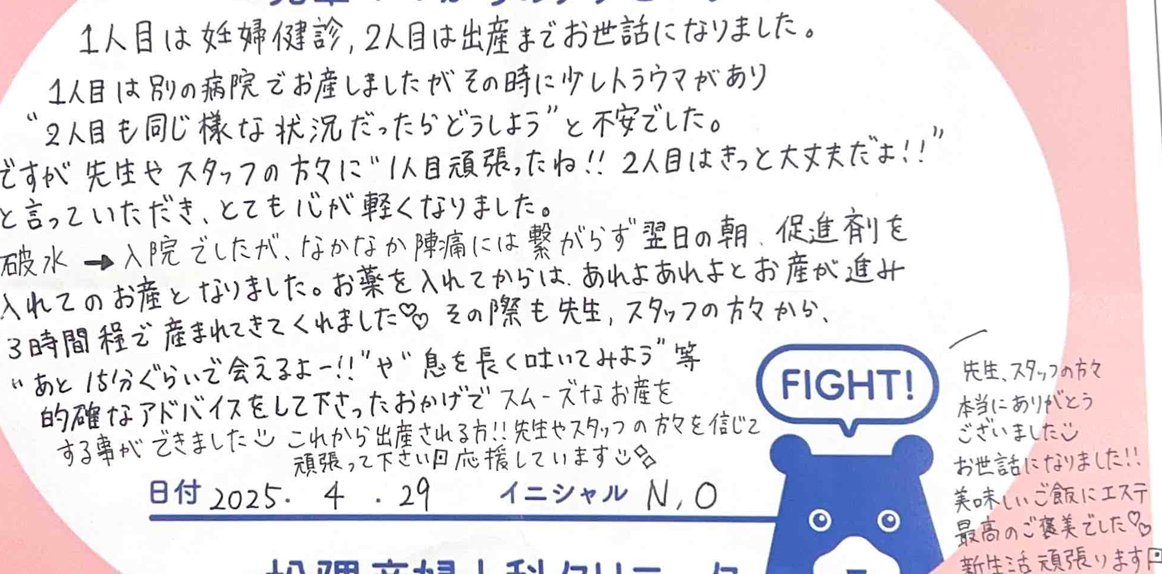 1人目は妊婦健診,2人目は出産までお世話になりました。
1人目は別の病院でお産しましたがその時に少しトラウマがあり
“2人目も同じ様な状況だったらどうしよう”と不安でした。
ですが先生やスタッフの方々に“1人目頑張ったね!! 2人目はきっと大丈夫だよ!!”
と言っていただき、とても心が軽くなりました。
破水→入院でしたが、なかなか陣痛には繋がらず翌日の朝、促進剤を
入れてのお産となりました。お薬を入れてからは、あれよあれよとお産が進み
3時間程で産まれてきてくれました♡♡ その際も先生,スタッフの方々から、
“あと15分ぐらいで会えるよー!!”や“息を長く吐いてみよう”等
的確なアドバイスをして下さったおかげでスムーズなお産を
する事ができました これから出産される方!!先生やスタッフの方々を信じて
頑張って下さい 応援しています
日付 2025. 4 .29 イニシャル N,O
FIGHT!
先生、スタッフの方々
本当にありがとう
ございました
お世話になりました!!
美味しいご飯にエステ
最高のご褒美でした♡♡
新生活頑張ります
産婦人科クリニック